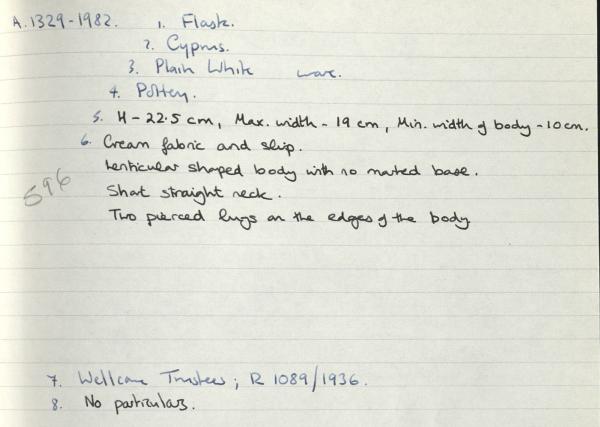 A.1329-1982. 1. Flask.
2. Cyprus.
3. Plain White ware.
4. Pottery.
5. H - 22.5 cm, Max. width - 19 cm, Min. width of body - 10 cm.
6. Cream fabric and slip.
Lenticular shaped body with no marked base.
Short straight neck.
596
Two pierced lugs on the edges of the body
7. Wellcome Trustees; R 1089/1936.
8. No particulars.